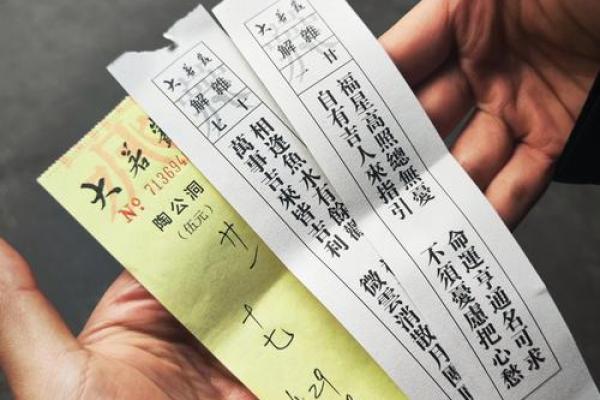 大若
No 713694
陶公洞
(伍元)
廿一
十七
4.29
大若岩
雜解
十七
相逢魚水有餘
萬事吉來皆吉利
微雲消散月團
大若岩
雜解
廿一
福星高照總無憂
命運亨通名可求
自有吉人來指引
不須憂慮把心愁